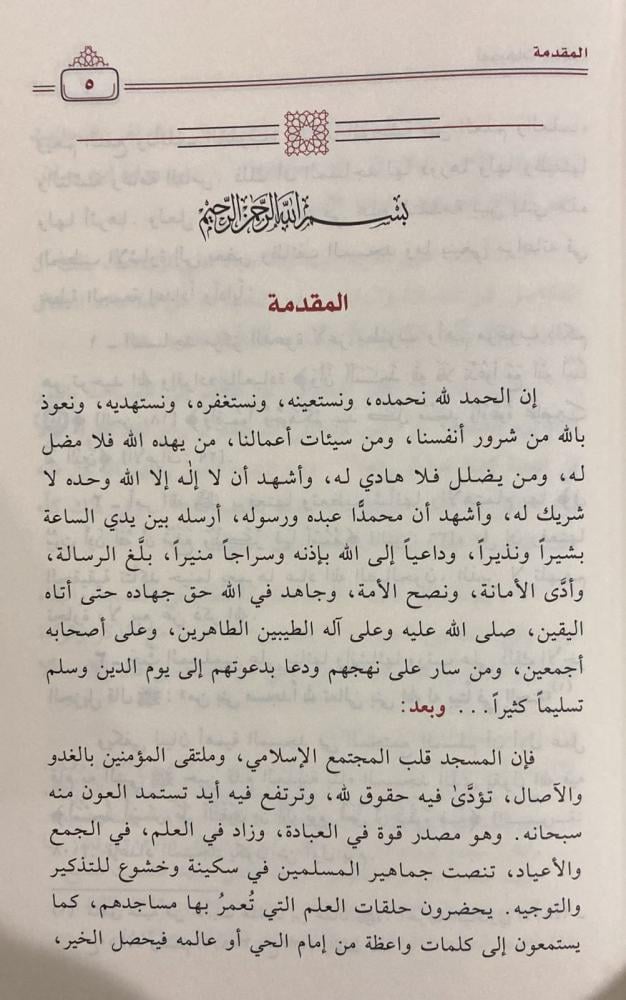 المقدمة
٥
بسم الله الرحمن الرحيم
المقدمة
إن الحمد لله نحمده، ونستعينه، ونستغفره، ونستهديه، ونعوذ
بالله من شرور أنفسنا، ومن سيئات أعمالنا، من يهده الله فلا مضل
له، ومن يضلل فلا هادي له، وأشهد أن لا إلٰه إلا الله وحده لا
شريك له، وأشهد أن محمدًا عبده ورسوله، أرسله بين يدي الساعة
بشيراً ونذيراً، وداعياً إلى الله بإذنه وسراجاً منيراً، بلَّغ الرسالة،
وأدَّى الأمانة، ونصح الأمة، وجاهد في الله حق جهاده حتى أتاه
اليقين، صلى الله عليه وعلى آله الطيبين الطاهرين، وعلى أصحابه
أجمعين، ومن سار على نهجهم ودعا بدعوتهم إلى يوم الدين وسلم
تسليماً كثيراً... وبعد:
فإن المسجد قلب المجتمع الإسلامي، وملتقى المؤمنين بالغدو
والآصال، تؤدَّىٰ فيه حقوق لله، وترتفع فيه أيد تستمد العون منه
سبحانه. وهو مصدر قوة في العبادة، وزاد في العلم، في الجمع
والأعياد، تنصت جماهير المسلمين في سكينة وخشوع للتذكير
والتوجيه. يحضرون حلقات العلم التي تُعمرُ بها مساجدهم، كما
يستمعون إلى كلمات واعظة من إمام الحي أو عالمه فيحصل الخير،